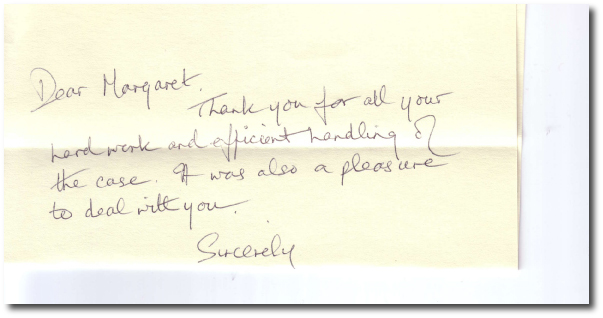 Dear Margaret.
Thank you for all your
hard work and efficient handling of
the case. It was also a pleasure
to deal with you.
Sincerely